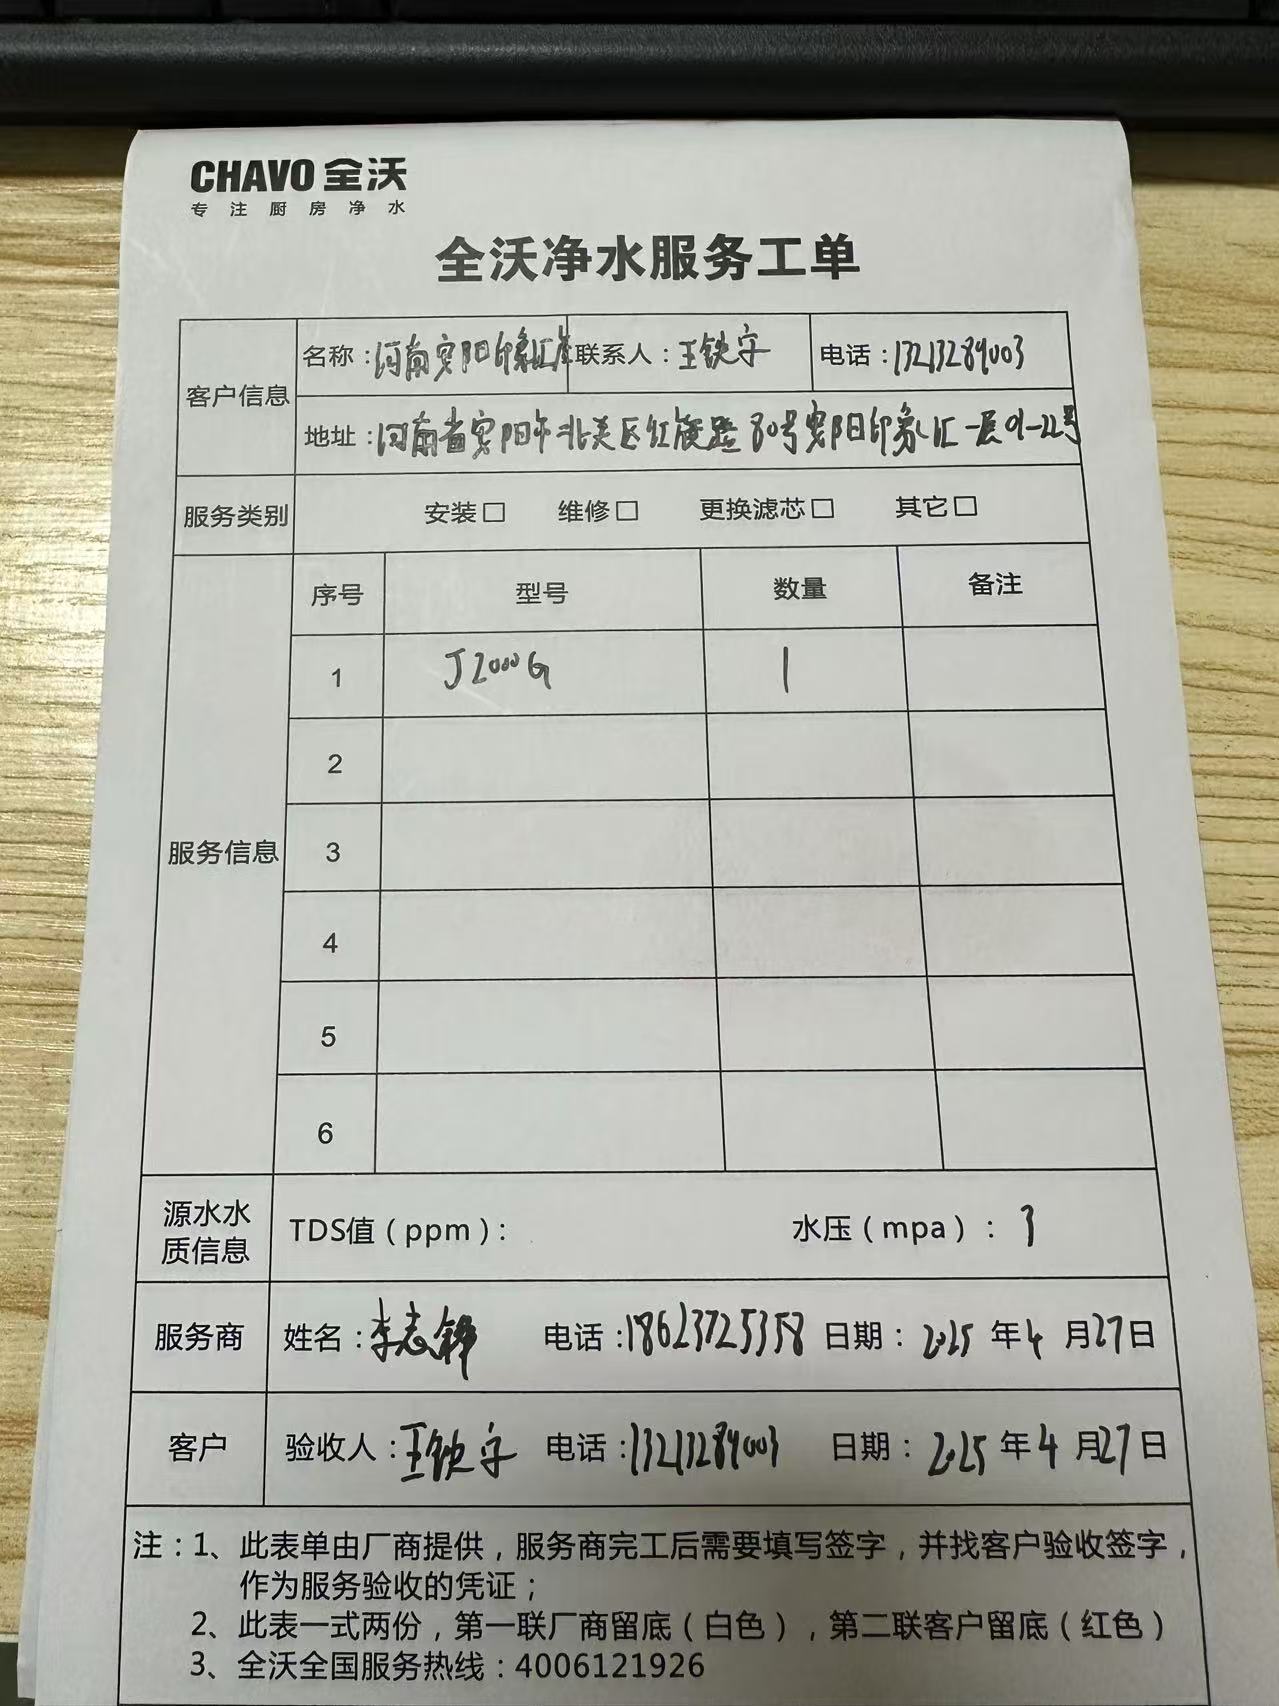 CHAVO 全沃
专注厨房净水
全沃净水服务工单
客户信息
名称：河南安阳印象汇 联系人：王铁宇 电话：13213289003
地址：河南省安阳市北关区红旗路80号安阳印象汇一层01-22号
服务类别 安装□ 维修□ 更换滤芯□ 其它□
服务信息
序号 型号 数量 备注
1 J2000G 1
2
3
4
5
6
源水水质信息 TDS值（ppm）： 水压（mpa）：3
服务商 姓名：李志锋 电话：18623725358 日期：2025年4月27日
客户 验收人：王铁宇 电话：13213289003 日期：2025年4月27日
注：1、此表单由厂商提供，服务商完工后需要填写签字，并找客户验收签字，
作为服务验收的凭证；
2、此表一式两份，第一联厂商留底（白色），第二联客户留底（红色）
3、全沃全国服务热线：4006121926